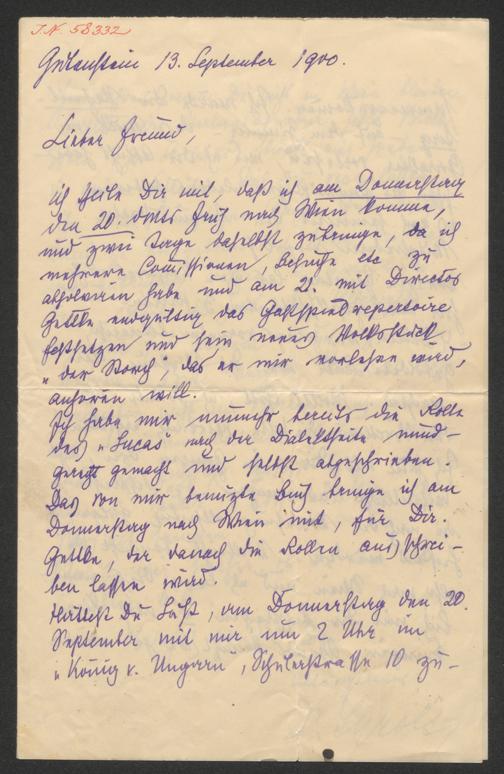 J.N. 58332
Gutenstein 13. September 1900.
Lieber Freund,
ich theile Dir mit, daß ich am Donnerstag
den 20. dmts früh nach Wien komme,
und zwei Tage daselbst zubringe, da ich
mehrere Comissionen, Besuche etc zu
absolviren habe und am 21. mit Director
Gettke endgültig das Gastspielrepertoire
festsetzen und sein neues Volksstück
„der Storch", das er mir vorlesen wird,
anhören will.
Ich habe mir nunmehr bereits die Rolle
des „Lucas" nach der Dialektseite mund-
gerecht gemacht und selbst abgeschrieben.
Das von mir benuzte Buch bringe ich am
Donnerstag nach Wien mit, für Dir.
Gettke, der danach die Rollen ausschrei-
ben lassen wird.
Hättest Du Lust, am Donnerstag den 20.
September mit mir um 2 Uhr im
„König v. Ungarn", Schulerstrasse 10 zu-